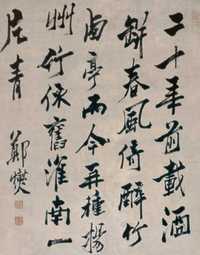 二十年前載酒
缾春風倚醉竹
西亭而今再種揚
州竹依舊淮南一
片青
鄭燮